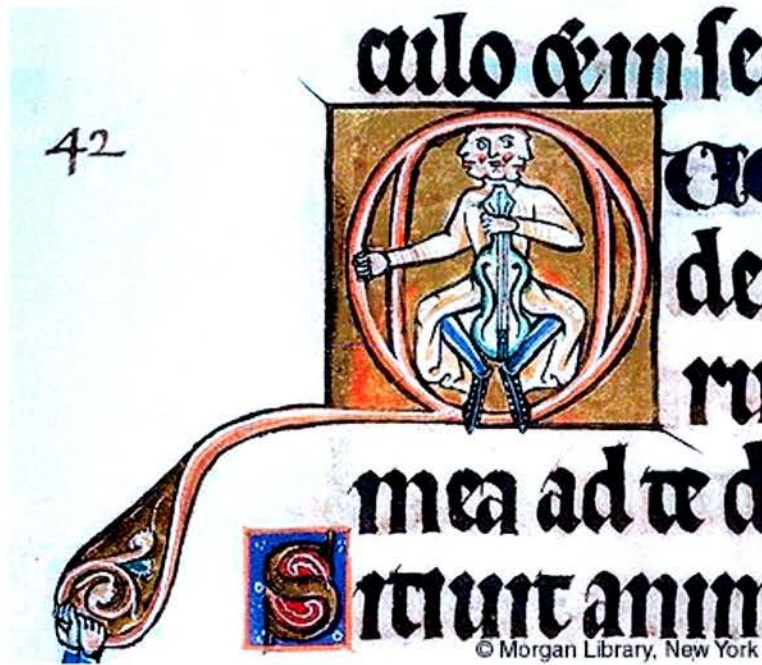 culo & in se
42
Q
de
ru
mea ad te d
Sitiuit anim
© Morgan Library, New York